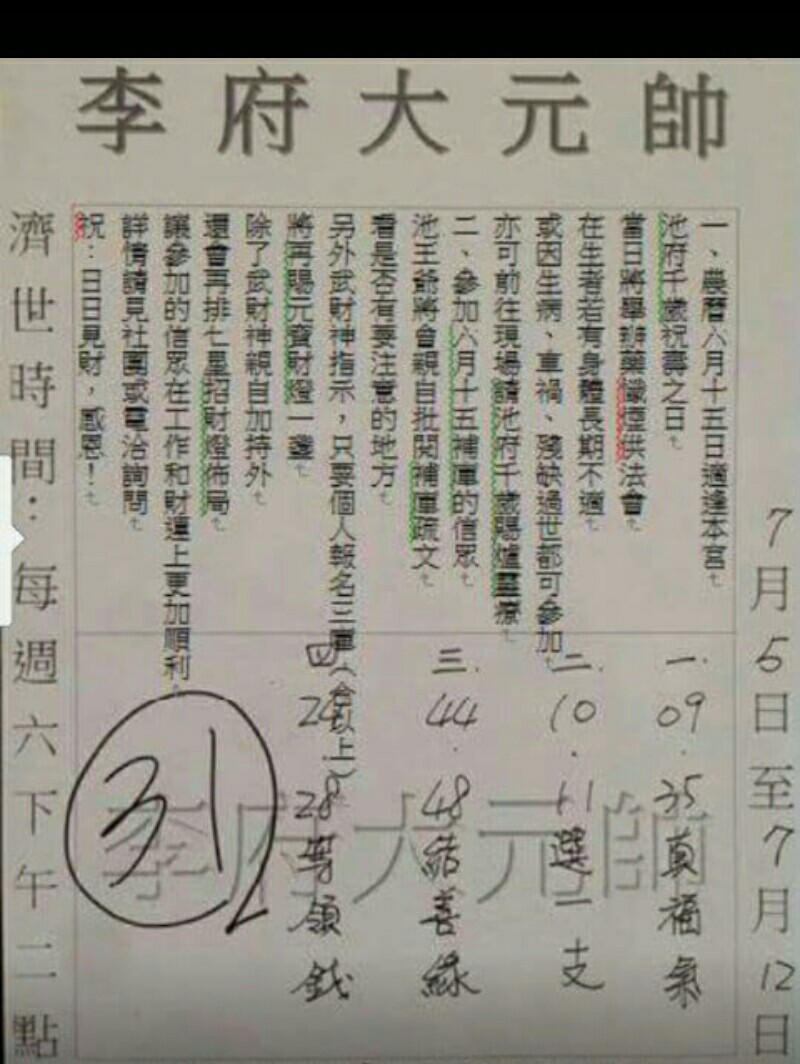 李府大元帥
7月5日至7月12日
一、農曆六月十五日適逢本宮
池府千歲祝壽之日
當日將舉辦藥懺煙供法會
在生者若有身體長期不適
或因生病、車禍、殘缺過世都可參加
亦可前往現場請池府千歲賜爐靈療
二、參加六月十五補庫的信眾
池王爺將會親自批閱補庫疏文
看是否有要注意的地方
另外武財神指示，只要個人報名三庫(含以上)
將再賜元寶財燈一盞
除了武財神親自加持外
還會再排七星招財燈佈局
讓參加的信眾在工作和財運上更加順利
詳情請見社團或電洽詢問
祝：日日見財，感恩！
一.09.35真福氣
二.10.11選一支
三.44.48結善緣
四24 28等領錢
31
李府大元帥
濟世時間：每週六下午二點